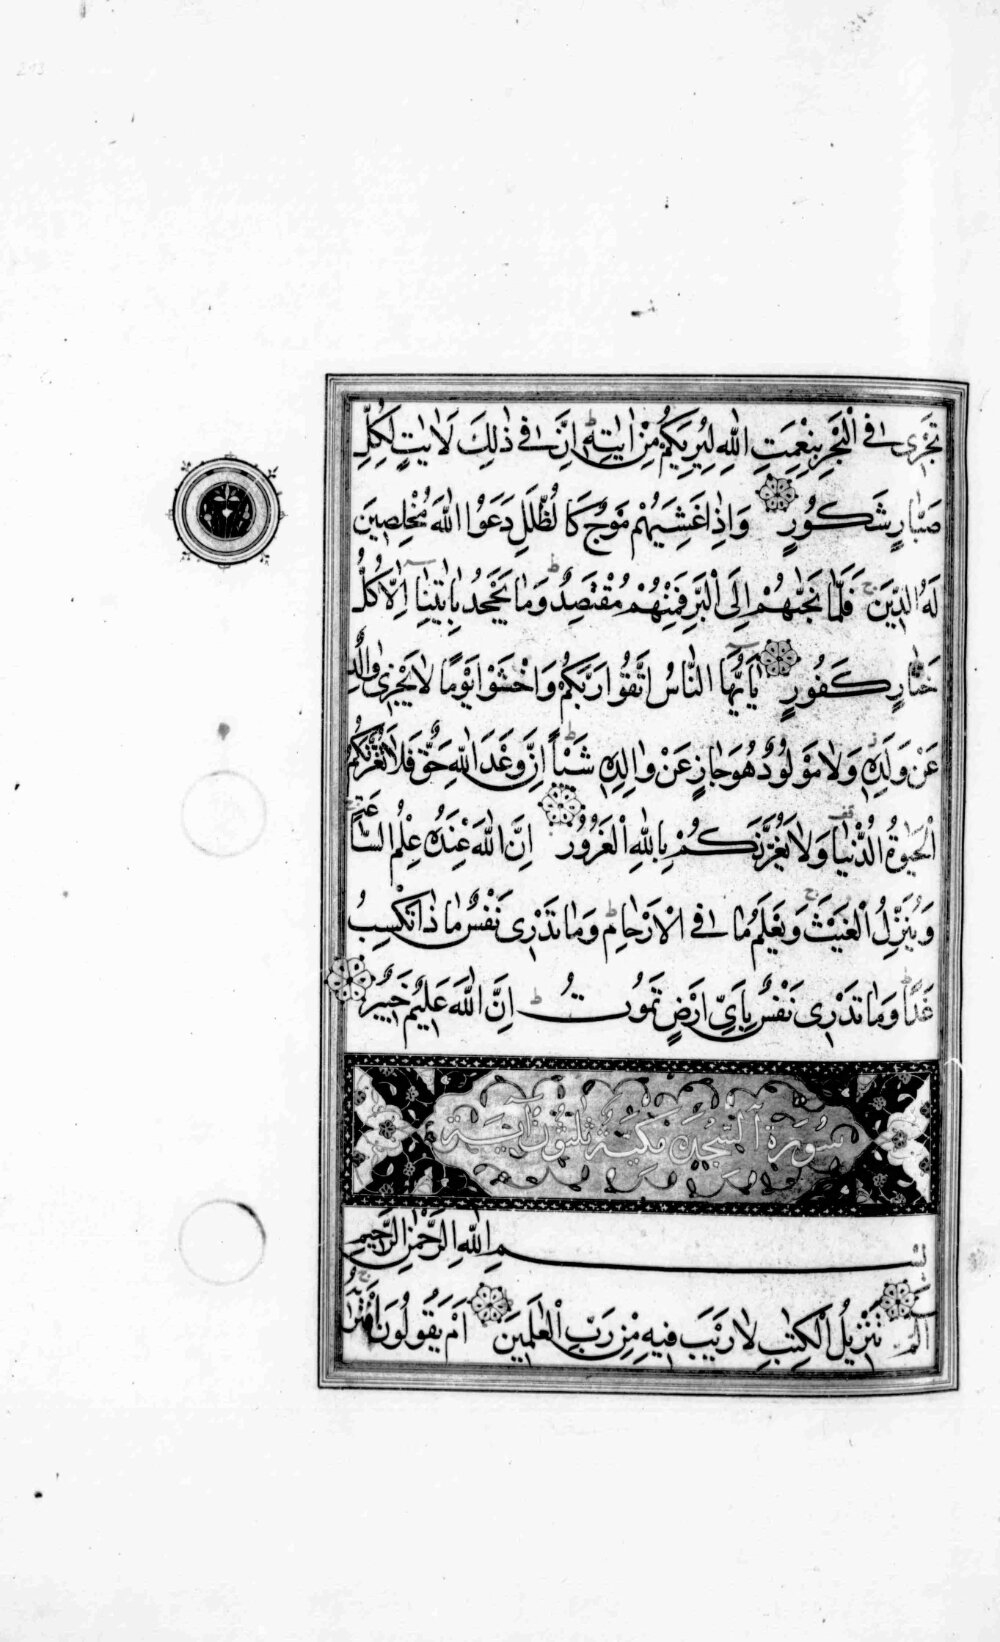 تَجْرِى فِى الْبَحْرِ بِنِعْمَتِ اللّٰهِ لِيُرِيَكُمْ مِنْ اٰيَاتِهٖ اِنَّ فِى ذٰلِكَ لَاٰيٰتٍ لِكُلِّ
صَبَّارٍ شَكُورٍ وَاِذَا غَشِيَهُمْ مَوْجٌ كَالظُّلَلِ دَعَوُا اللّٰهَ مُخْلِصِينَ
لَهُ الدِّينَ فَلَمَّا نَجّٰيهُمْ اِلَى الْبَرِّ فَمِنْهُمْ مُقْتَصِدٌ وَمَا يَجْحَدُ بِاٰيٰتِنَا اِلَّا كُلُّ
خَتَّارٍ كَفُورٍ يَا اَيُّهَا النَّاسُ اتَّقُوا رَبَّكُمْ وَاخْشَوْا يَوْمًا لَا يَجْزِى وَالِدٌ
عَنْ وَلَدِهٖ وَلَا مَوْلُودٌ هُوَ جَازٍ عَنْ وَالِدِهٖ شَيْئًا اِنَّ وَعْدَ اللّٰهِ حَقٌّ فَلَا تَغُرَّنَّكُمُ
الْحَيٰوةُ الدُّنْيَا وَلَا يَغُرَّنَّكُمْ بِاللّٰهِ الْغَرُورُ اِنَّ اللّٰهَ عِنْدَهُ عِلْمُ السَّاعَةِ
وَيُنَزِّلُ الْغَيْثَ وَيَعْلَمُ مَا فِى الْاَرْحَامِ وَمَا تَدْرِى نَفْسٌ مَاذَا تَكْسِبُ
غَدًا وَمَا تَدْرِى نَفْسٌ بِاَىِّ اَرْضٍ تَمُوتُ اِنَّ اللّٰهَ عَلِيمٌ خَبِيرٌ
سُورَةُ السَّجْدَةِ مَكِّيَّةٌ ثَلٰثُونَ اٰيَةً
بِسْمِ اللّٰهِ الرَّحْمٰنِ الرَّحِيمِ
الٓمٓ تَنْزِيلُ الْكِتٰبِ لَا رَيْبَ فِيهِ مِنْ رَبِّ الْعٰلَمِينَ اَمْ يَقُولُونَ افْتَرٰيهُ